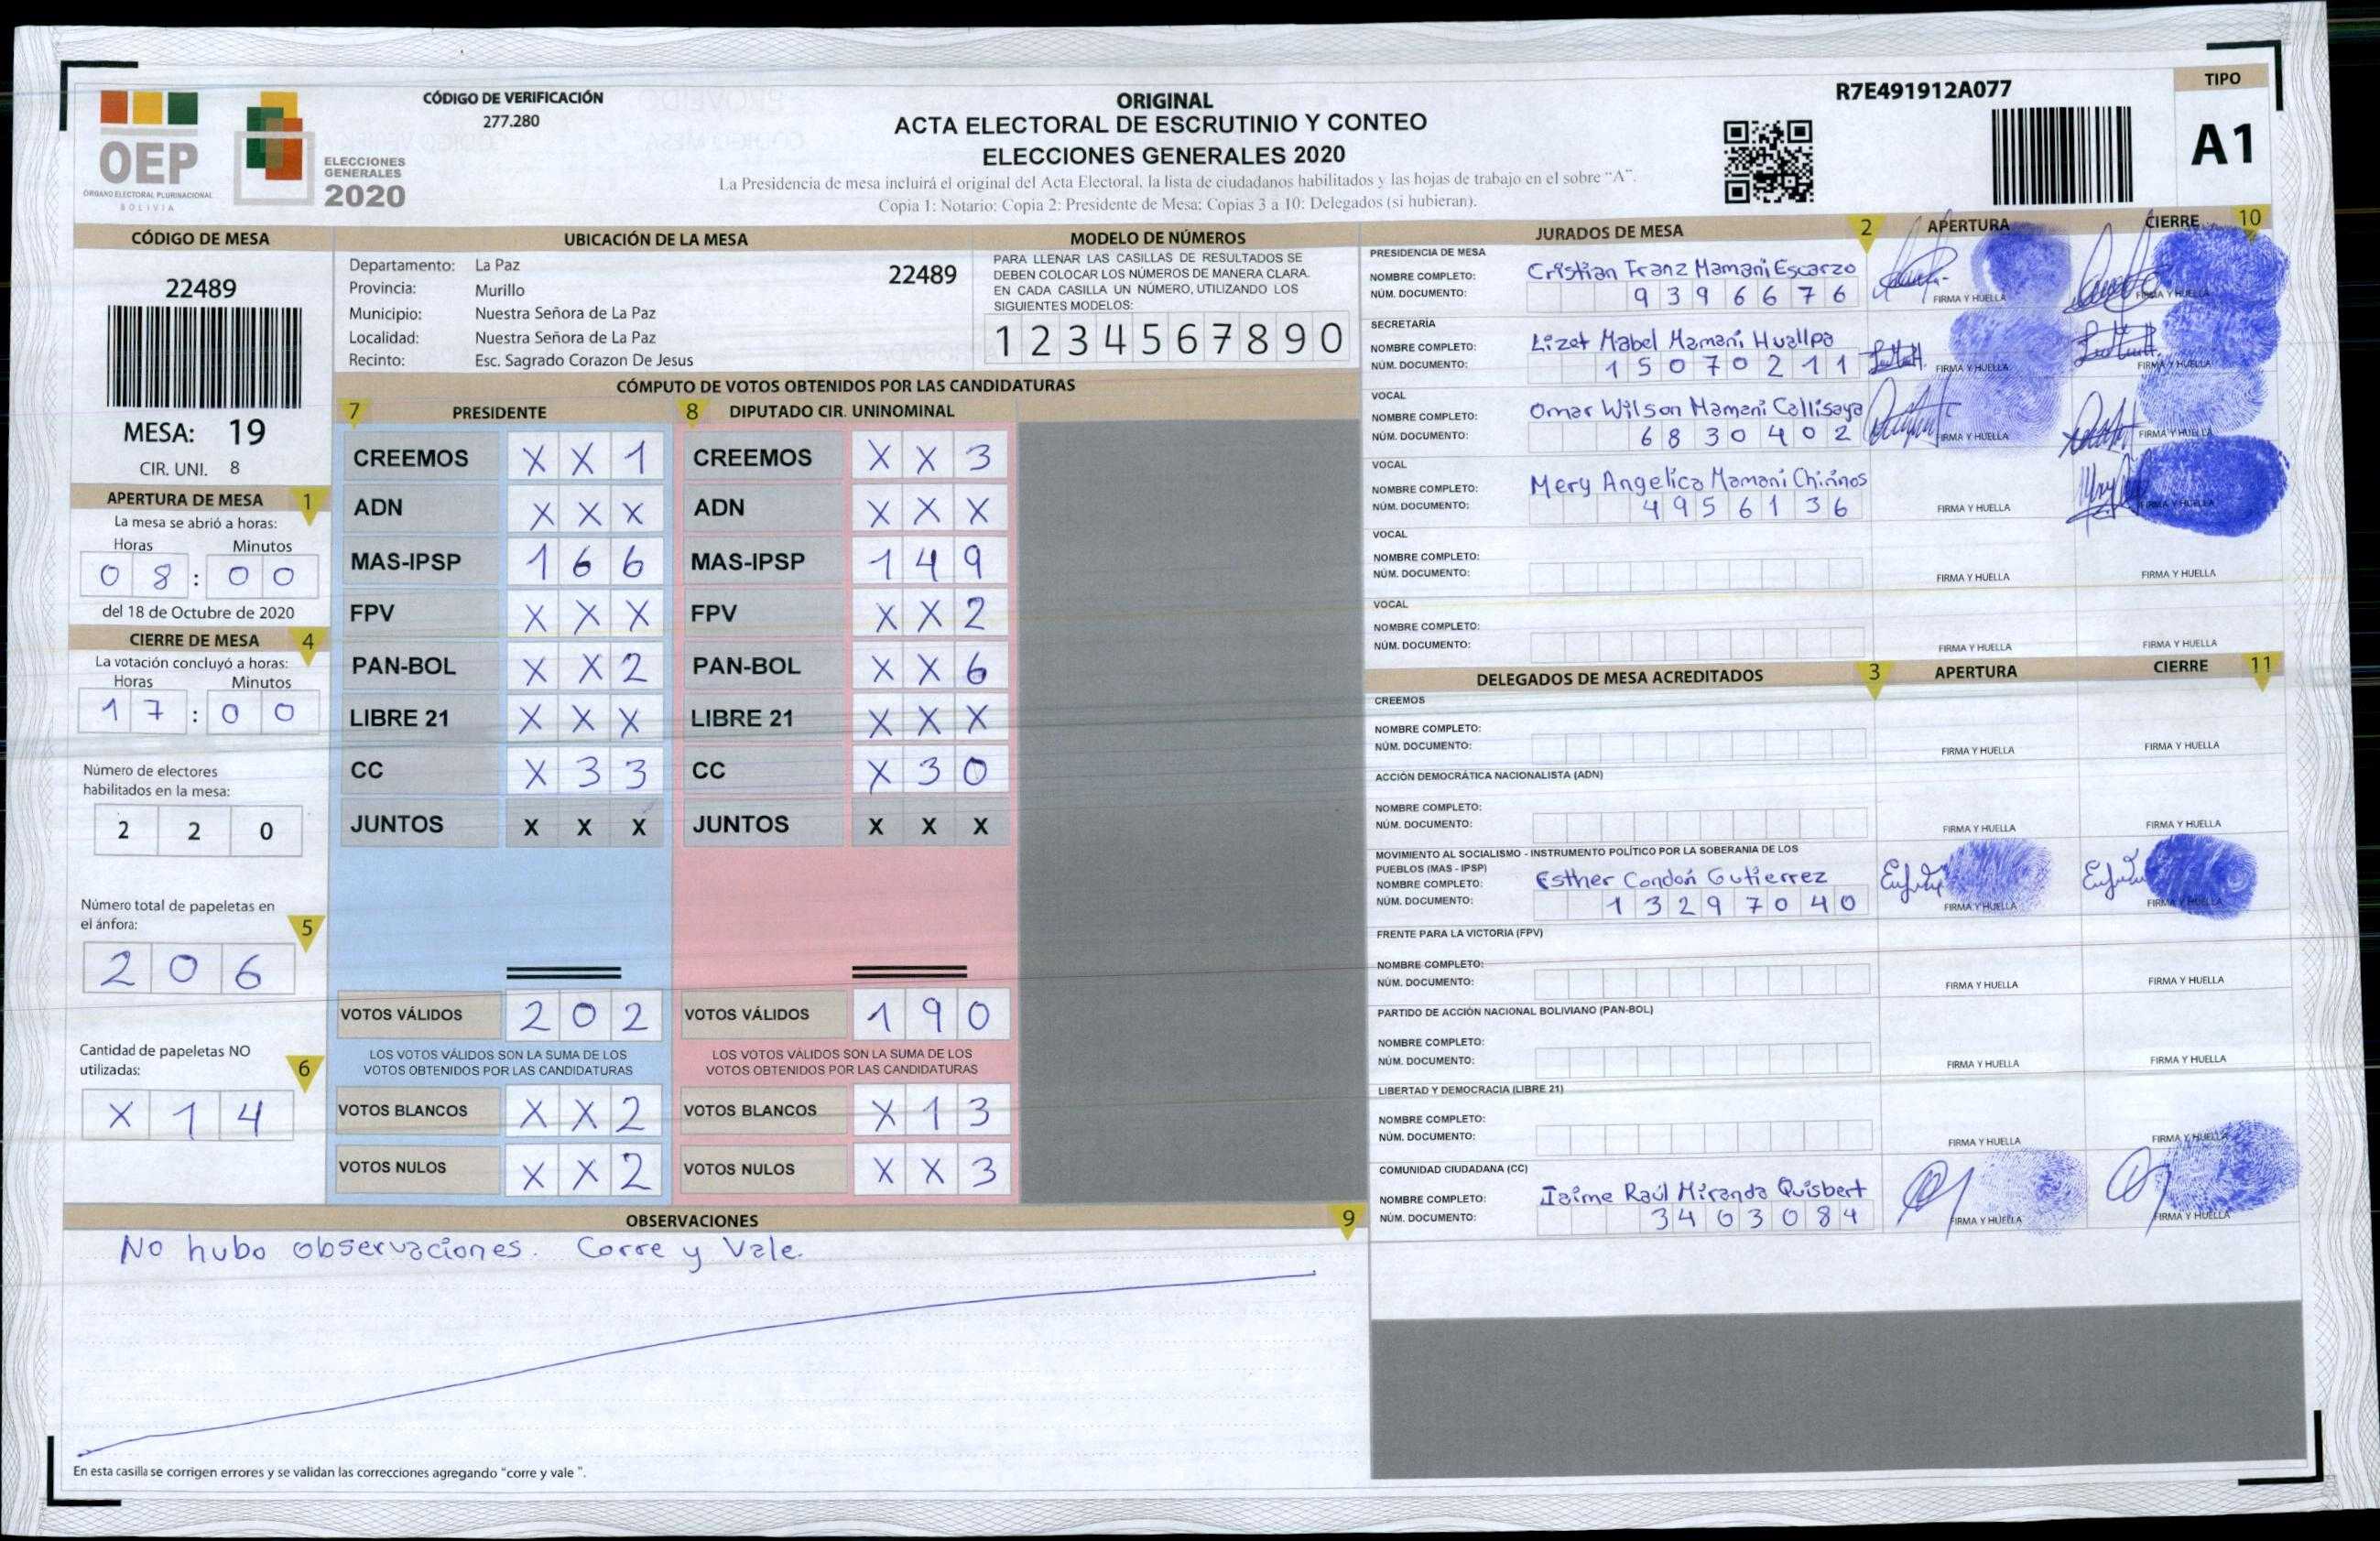 OEP
ÓRGANO ELECTORAL PLURINACIONAL
BOLIVIA
ELECCIONES
GENERALES
2020
CÓDIGO DE VERIFICACIÓN
277.280
ORIGINAL
ACTA ELECTORAL DE ESCRUTINIO Y CONTEO
ELECCIONES GENERALES 2020
La Presidencia de mesa incluirá el original del Acta Electoral, la lista de ciudadanos habilitados y las hojas de trabajo en el sobre "A".
Copia 1: Notario; Copia 2: Presidente de Mesa; Copias 3 a 10: Delegados (si hubieran).
R7E491912A077
TIPO
A1
CÓDIGO DE MESA
22489
MESA: 19
CIR. UNI. 8
APERTURA DE MESA 1
La mesa se abrió a horas:
Horas Minutos
08:00
del 18 de Octubre de 2020
CIERRE DE MESA 4
La votación concluyó a horas:
Horas Minutos
17:00
Número de electores
habilitados en la mesa:
220
Número total de papeletas en
el ánfora: 5
206
Cantidad de papeletas NO
utilizadas: 6
X14
UBICACIÓN DE LA MESA
Departamento: La Paz 22489
Provincia: Murillo
Municipio: Nuestra Señora de La Paz
Localidad: Nuestra Señora de La Paz
Recinto: Esc. Sagrado Corazon De Jesus
MODELO DE NÚMEROS
PARA LLENAR LAS CASILLAS DE RESULTADOS SE
DEBEN COLOCAR LOS NÚMEROS DE MANERA CLARA.
EN CADA CASILLA UN NÚMERO, UTILIZANDO LOS
SIGUIENTES MODELOS:
1234567890
CÓMPUTO DE VOTOS OBTENIDOS POR LAS CANDIDATURAS
7 PRESIDENTE 8 DIPUTADO CIR. UNINOMINAL
CREEMOS X X 1 CREEMOS X X 3
ADN X X X ADN X X X
MAS-IPSP 1 6 6 MAS-IPSP 1 4 9
FPV X X X FPV X X 2
PAN-BOL X X 2 PAN-BOL X X 6
LIBRE 21 X X X LIBRE 21 X X X
CC X 3 3 CC X 3 0
JUNTOS X X X JUNTOS X X X
VOTOS VÁLIDOS 2 0 2 VOTOS VÁLIDOS 1 9 0
LOS VOTOS VÁLIDOS SON LA SUMA DE LOS LOS VOTOS VÁLIDOS SON LA SUMA DE LOS
VOTOS OBTENIDOS POR LAS CANDIDATURAS VOTOS OBTENIDOS POR LAS CANDIDATURAS
VOTOS BLANCOS X X 2 VOTOS BLANCOS X 1 3
VOTOS NULOS X X 2 VOTOS NULOS X X 3
OBSERVACIONES 9
No hubo observaciones. Corre y Vale.
En esta casilla se corrigen errores y se validan las correcciones agregando "corre y vale ".
JURADOS DE MESA 2 APERTURA CIERRE 10
PRESIDENCIA DE MESA
NOMBRE COMPLETO: Cristian Franz Mamani Escarzo
NÚM. DOCUMENTO: 9396676 FIRMA Y HUELLA FIRMA Y HUELLA
SECRETARÍA
NOMBRE COMPLETO: Lizet Mabel Mamani Huallpa
NÚM. DOCUMENTO: 15070211 FIRMA Y HUELLA FIRMA Y HUELLA
VOCAL
NOMBRE COMPLETO: Omar Wilson Mamani Callisaya
NÚM. DOCUMENTO: 6830402 FIRMA Y HUELLA FIRMA Y HUELLA
VOCAL
NOMBRE COMPLETO: Mery Angelica Mamani Chirinos
NÚM. DOCUMENTO: 4956136 FIRMA Y HUELLA FIRMA Y HUELLA
VOCAL
NOMBRE COMPLETO:
NÚM. DOCUMENTO: FIRMA Y HUELLA FIRMA Y HUELLA
VOCAL
NOMBRE COMPLETO:
NÚM. DOCUMENTO: FIRMA Y HUELLA FIRMA Y HUELLA
DELEGADOS DE MESA ACREDITADOS 3 APERTURA CIERRE 11
CREEMOS
NOMBRE COMPLETO:
NÚM. DOCUMENTO: FIRMA Y HUELLA FIRMA Y HUELLA
ACCIÓN DEMOCRÁTICA NACIONALISTA (ADN)
NOMBRE COMPLETO:
NÚM. DOCUMENTO: FIRMA Y HUELLA FIRMA Y HUELLA
MOVIMIENTO AL SOCIALISMO - INSTRUMENTO POLÍTICO POR LA SOBERANIA DE LOS
PUEBLOS (MAS - IPSP)
NOMBRE COMPLETO: Esther Condori Gutierrez
NÚM. DOCUMENTO: 13297040 FIRMA Y HUELLA FIRMA Y HUELLA
FRENTE PARA LA VICTORIA (FPV)
NOMBRE COMPLETO:
NÚM. DOCUMENTO: FIRMA Y HUELLA FIRMA Y HUELLA
PARTIDO DE ACCIÓN NACIONAL BOLIVIANO (PAN-BOL)
NOMBRE COMPLETO:
NÚM. DOCUMENTO: FIRMA Y HUELLA FIRMA Y HUELLA
LIBERTAD Y DEMOCRACIA (LIBRE 21)
NOMBRE COMPLETO:
NÚM. DOCUMENTO: FIRMA Y HUELLA FIRMA Y HUELLA
COMUNIDAD CIUDADANA (CC)
NOMBRE COMPLETO: Jaime Raúl Miranda Quisbert
NÚM. DOCUMENTO: 3403084 FIRMA Y HUELLA FIRMA Y HUELLA